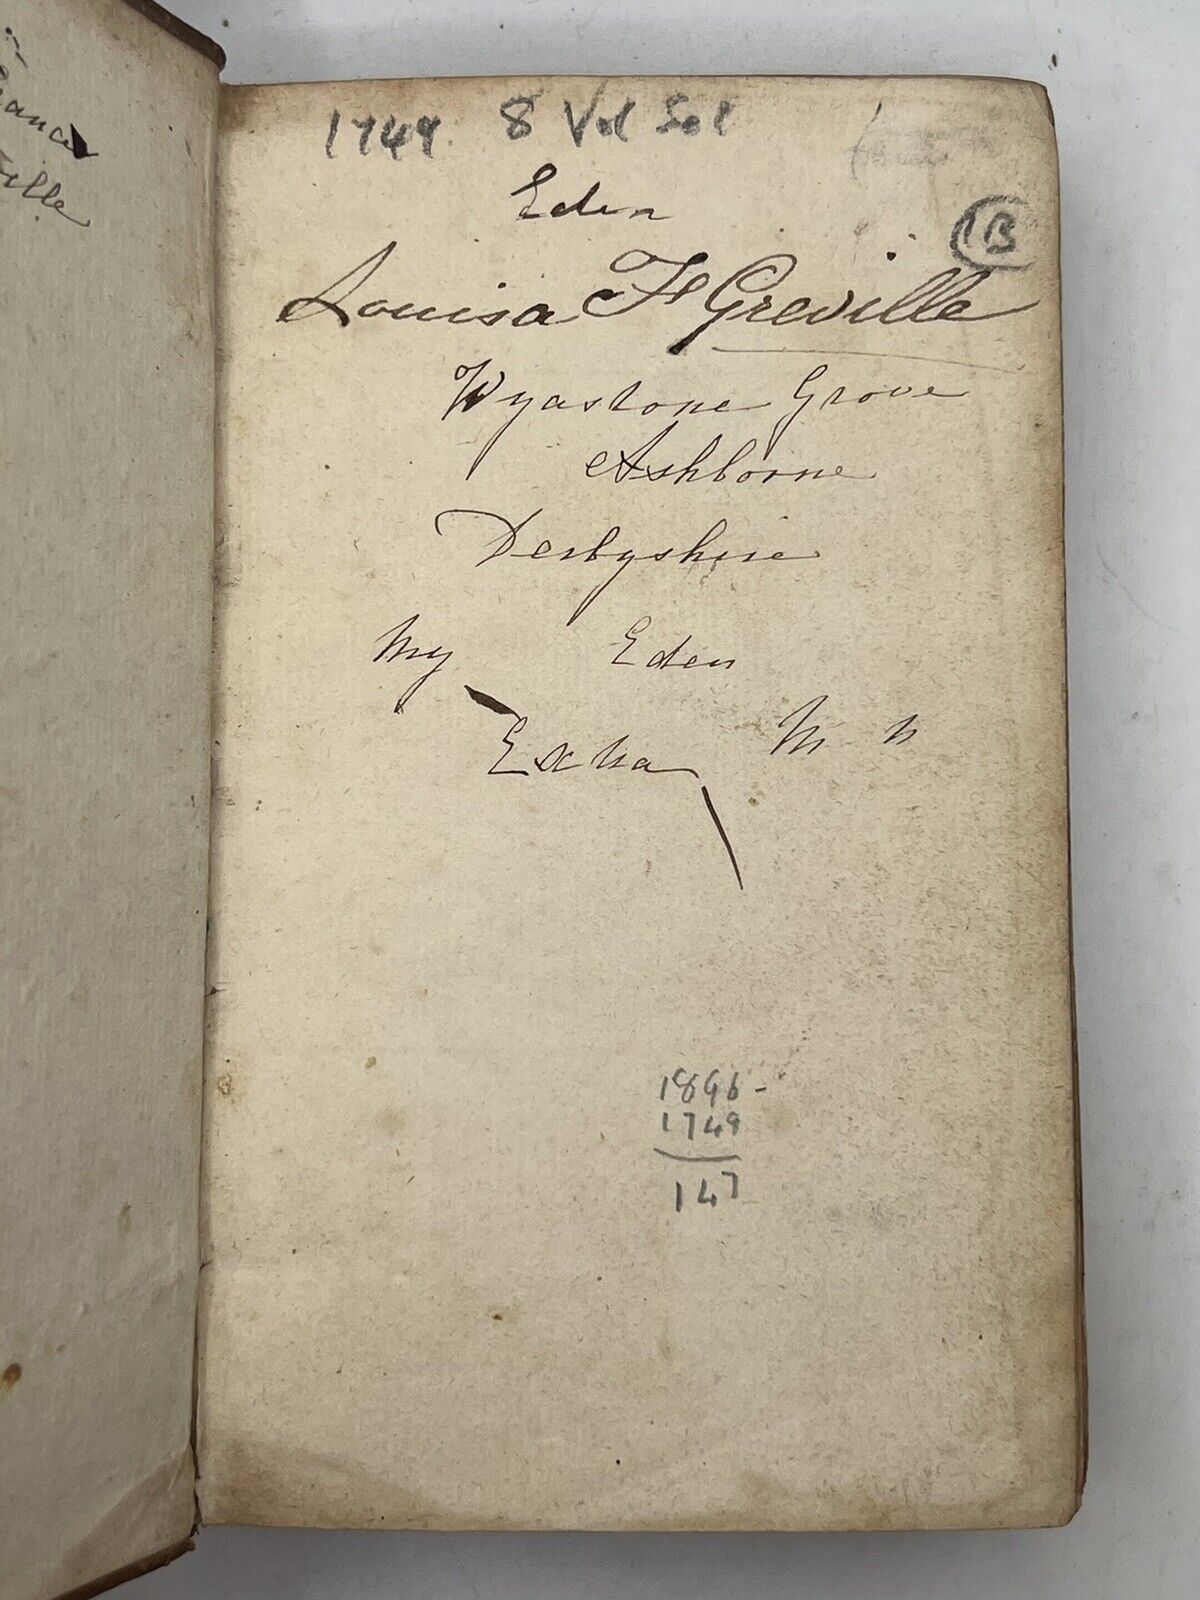 ville
1749. 8 Vol Set
B
Eden
Louisa F Greville
Wyastone Grove
Ashborne
Derbyshire
My Eden
M n
1896-
1749
147